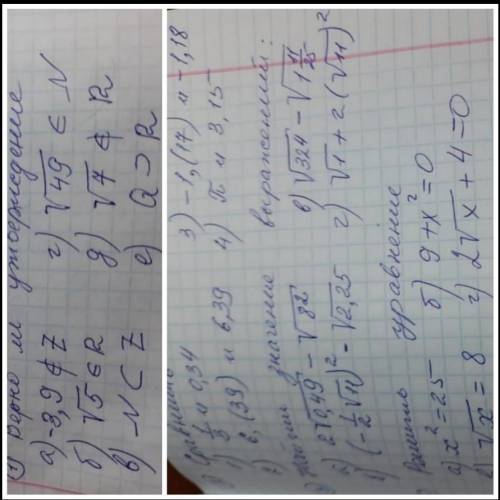 1) Верно ли утверждение
а) -3,9 ∉ Z г) √49 ∈ N
б) √5 ∈ R д) √7 ∉ R
в) N ⊂ Z е) Q ⊃ R
Сравнить
1) 1/3 и 0,34 3) -1,(17) и -1,18
2) 6,(39) и 6,39 4) π и 3,15
Найти значение выражений:
2√0,49 - √82 в) √324 - √1 11/25
(-1/2 √11)² - √2,25 г) √1 + 2(√11)²
Решить уравнение
а) x² = 25 б) 9 + x² = 0
√x = 8 г) 2√x + 4 = 0